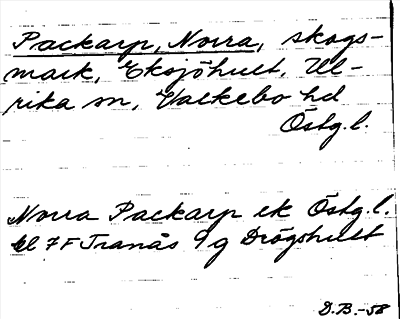 Packarp, Norra, skogs-
mark, Eksjöhult, Ul-
rika sn, Valkebo hd
Östg.l.
Norra Packarp ek Östg.l.
bl 7F Tranås 9g Drögshult
D.B.-58